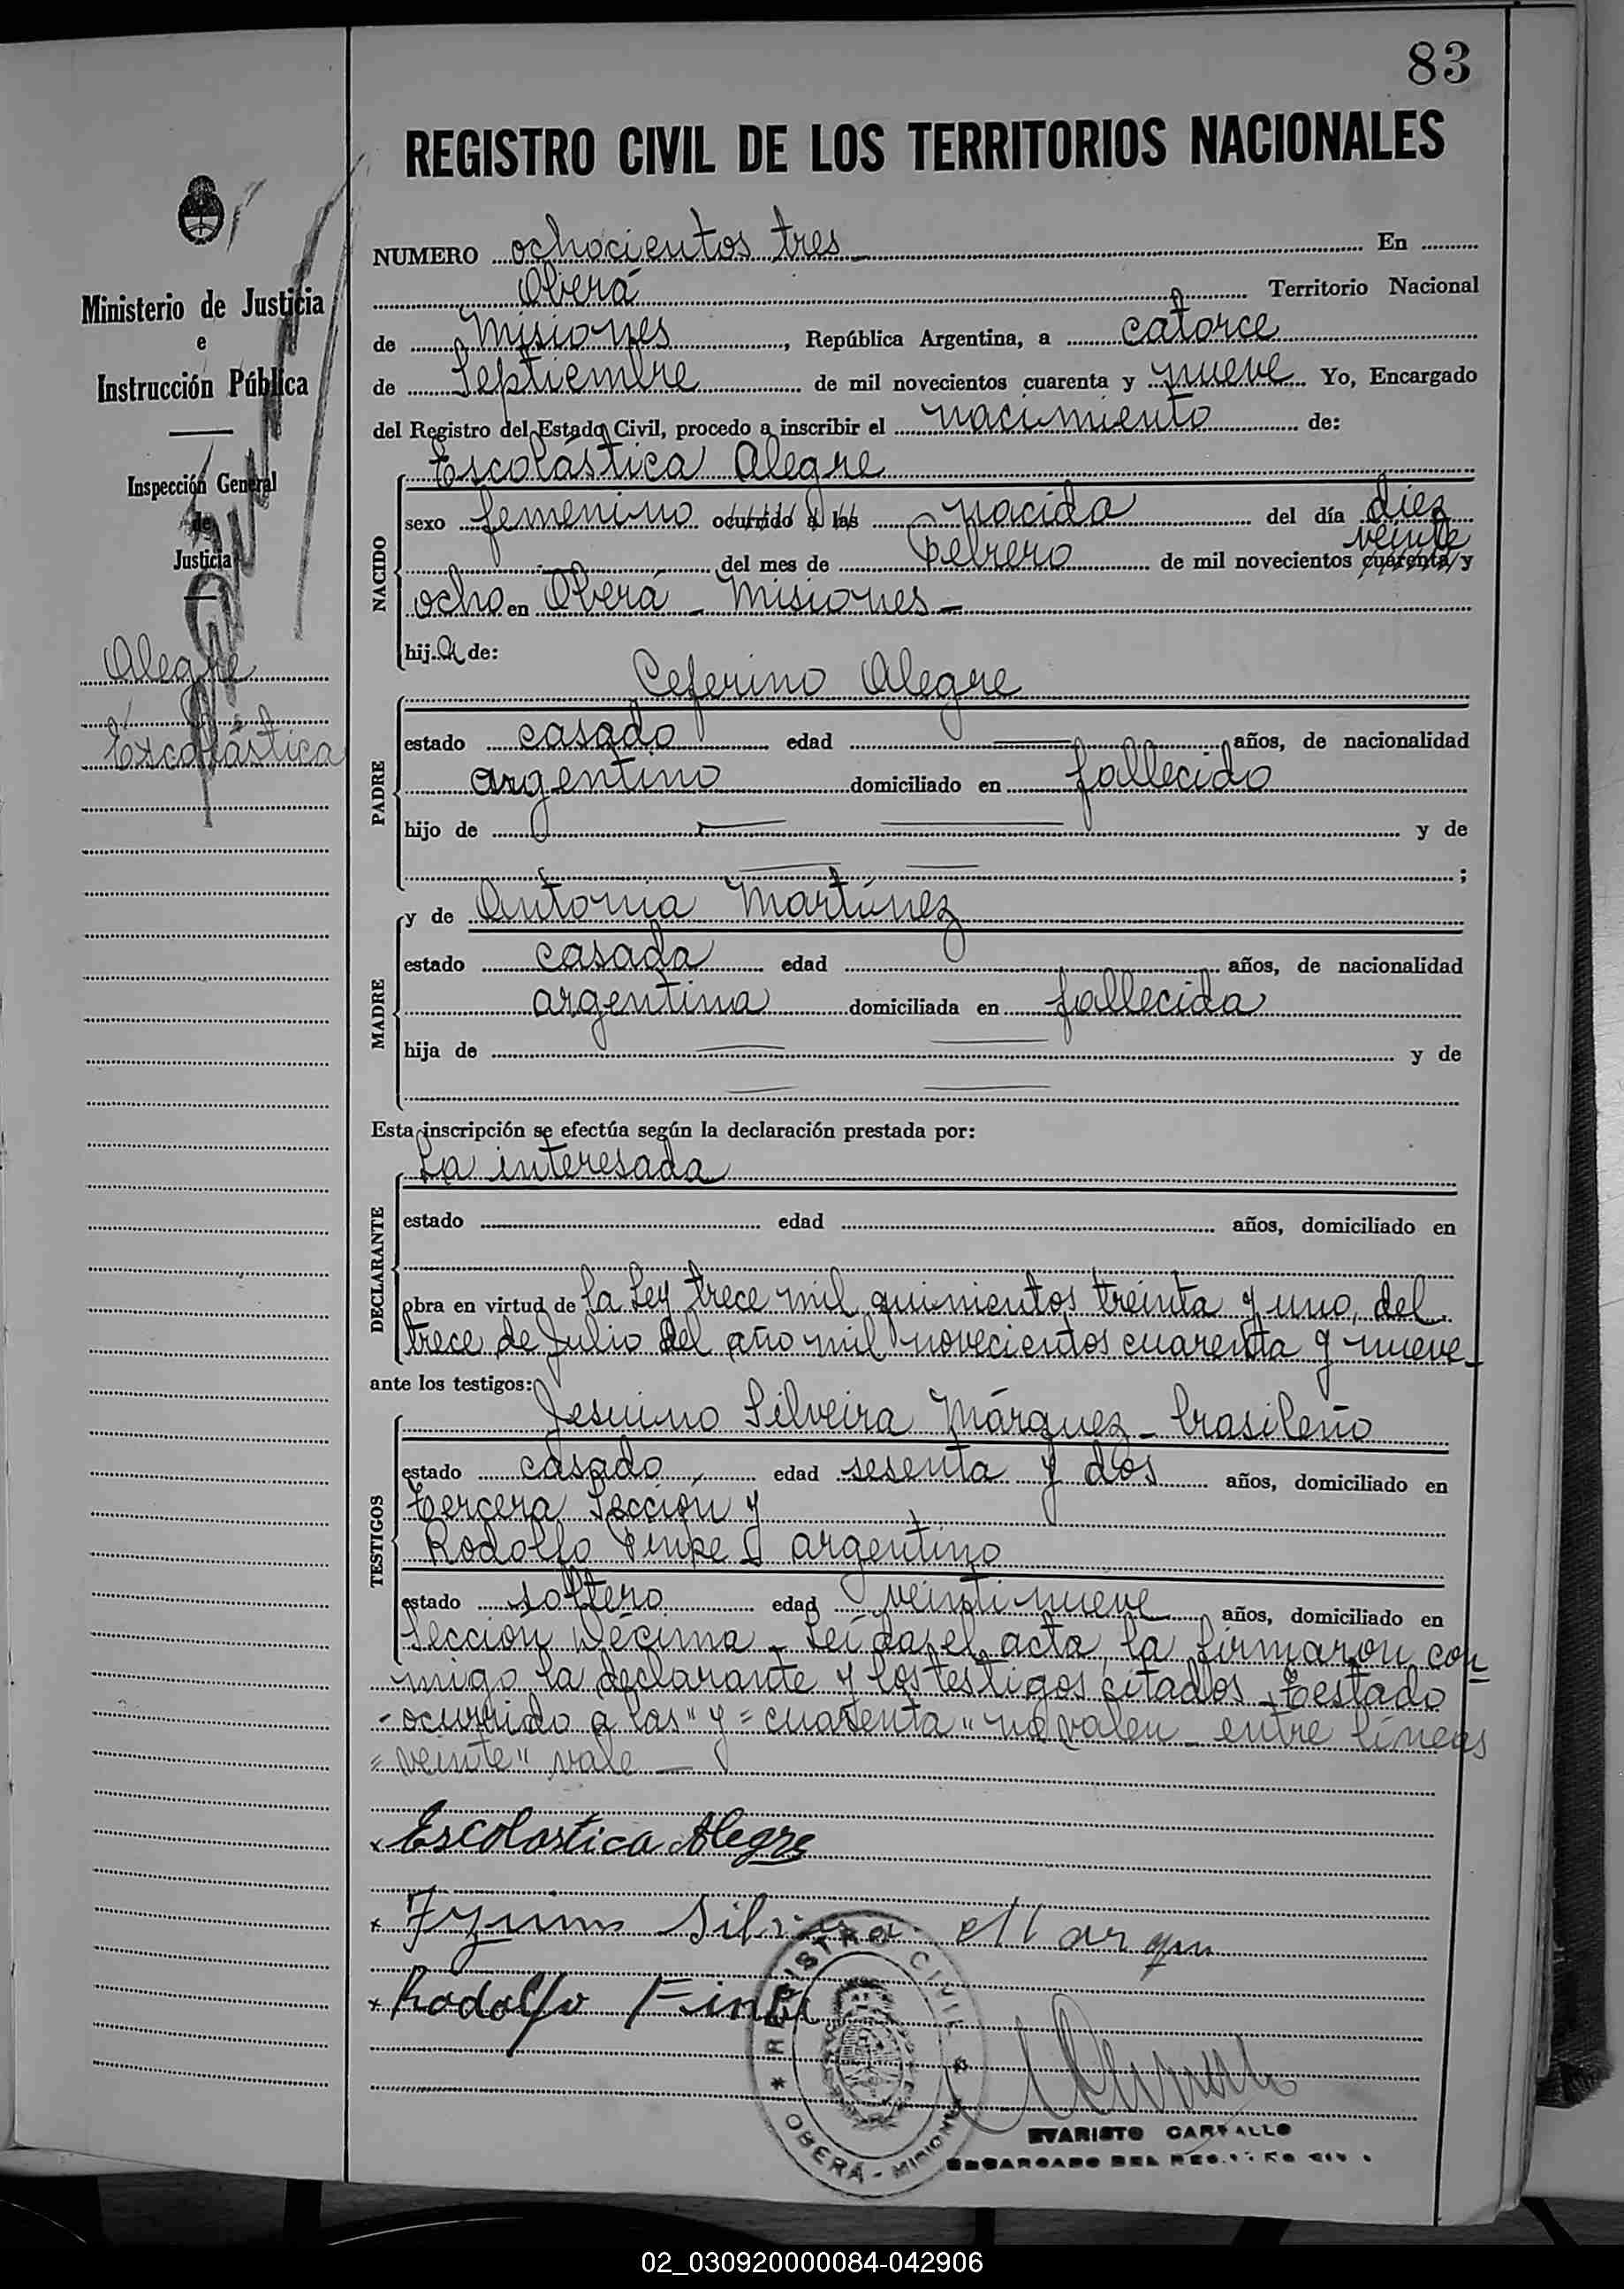 83
REGISTRO CIVIL DE LOS TERRITORIOS NACIONALES
Ministerio de Justicia
e
Instrucción Pública
Inspección General
de
Justicia
Alegre
Escolástica
NUMERO ochocientos tres En
Oberá Territorio Nacional
de Misiones, República Argentina, a catorce
de Septiembre de mil novecientos cuarenta y nueve Yo, Encargado
del Registro del Estado Civil, procedo a inscribir el nacimiento de:
Escolástica Alegre
NACIDO
sexo femenino ocurrido a las nacida del día diez
veinte
del mes de Febrero de mil novecientos cuarenta y
ocho en Oberá - Misiones -
hija de:
PADRE
Ceferino Alegre
estado casado edad años, de nacionalidad
argentino domiciliado en fallecido
hijo de y de
;
MADRE
y de Antonia Martínez
estado casada edad años, de nacionalidad
argentina domiciliada en fallecida
hija de y de
Esta inscripción se efectúa según la declaración prestada por:
DECLARANTE
La interesada
estado edad años, domiciliado en
obra en virtud de la Ley trece mil quinientos treinta y uno, del
trece de Julio del año mil novecientos cuarenta y nueve -
ante los testigos:
TESTIGOS
Jesuino Silveira Márquez - brasileño
estado casado, edad sesenta y dos años, domiciliado en
tercera Sección y
Rodolfo argentino
estado soltero edad veintinueve años, domiciliado en
Sección Décima - Leída el acta, la firmaron con
migo la declarante y los testigos citados - Testado
- ocurrido a las" y = cuarenta" no valen - entre líneas
= veinte" vale -
x Escolastica Alegre
x Silveira Marques
x Rodolfo
REGISTRO CIVIL
* OBERÁ - MISIONES *
EVARISTO CARVALLO
ENCARGADO DEL REGISTRO CIVIL
02_030920000084-042906